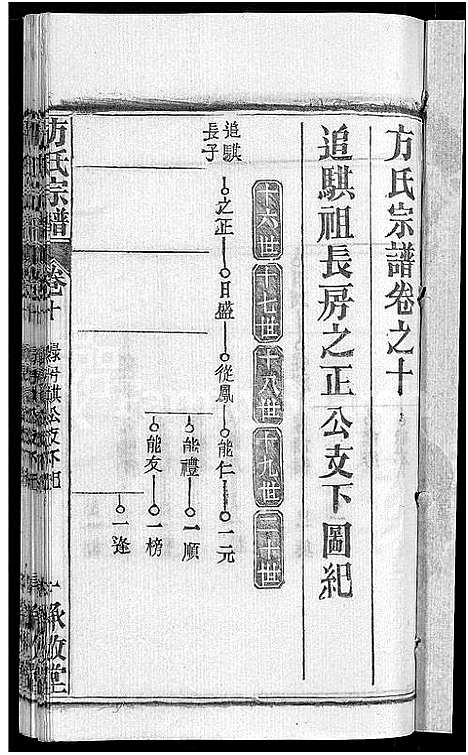 方氏宗譜卷之十
追騏祖長房之正公支下圖紀
十六世 十七世 十八世 十九世 二十世
追騏長子 之正 日盛 從鳳 能仁 一元
能禮 一順
能友 一榜
一逢
方氏宗譜 卷之十 公支下圖紀 承啟堂